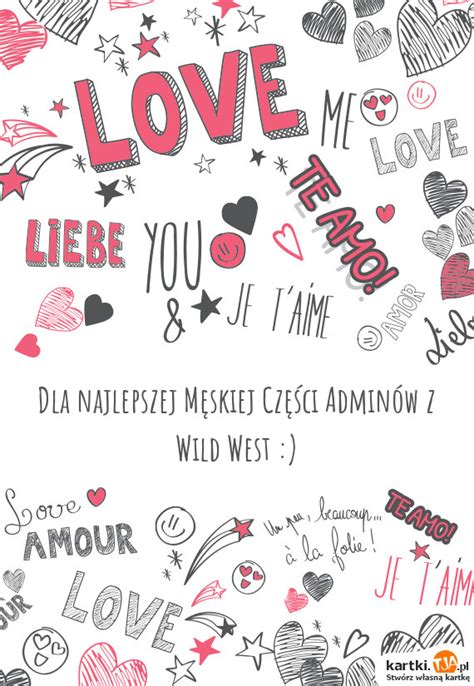 LOVE
ME
LOVE
TE AMO!
LIEBE
YOU
&
JE T'AIME
AMOR
Liebe
Dla najlepszej Męskiej Części Adminów z
Wild West :)
Love
AMOUR
Un peu, beaucoup...
à la folie!
TE AMO!
JE T'AIME
LOVE
kartki.TJA.pl
Stwórz własną kartkę